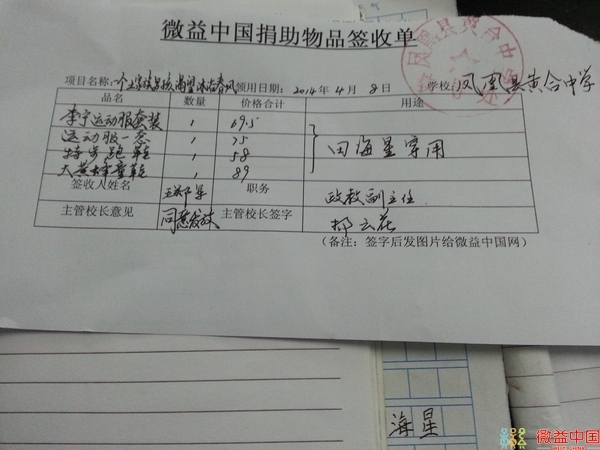 微益中国捐助物品签收单
项目名称:一个土家族男孩渴望沐浴春风 领用日期: 2014年4月8日 学校: 凤凰县黄合中学
品名 数量 价格合计 用途
李宁运动服套装 1 69.5
运动服一套 1 75 田海星穿用
特步跑鞋 1 58
大黄蜂童鞋 1 89
签收人姓名 职务 政教副主任
主管校长意见 同意发放 主管校长签字
(备注:签字后发图片给微益中国网)
海星
微益中国